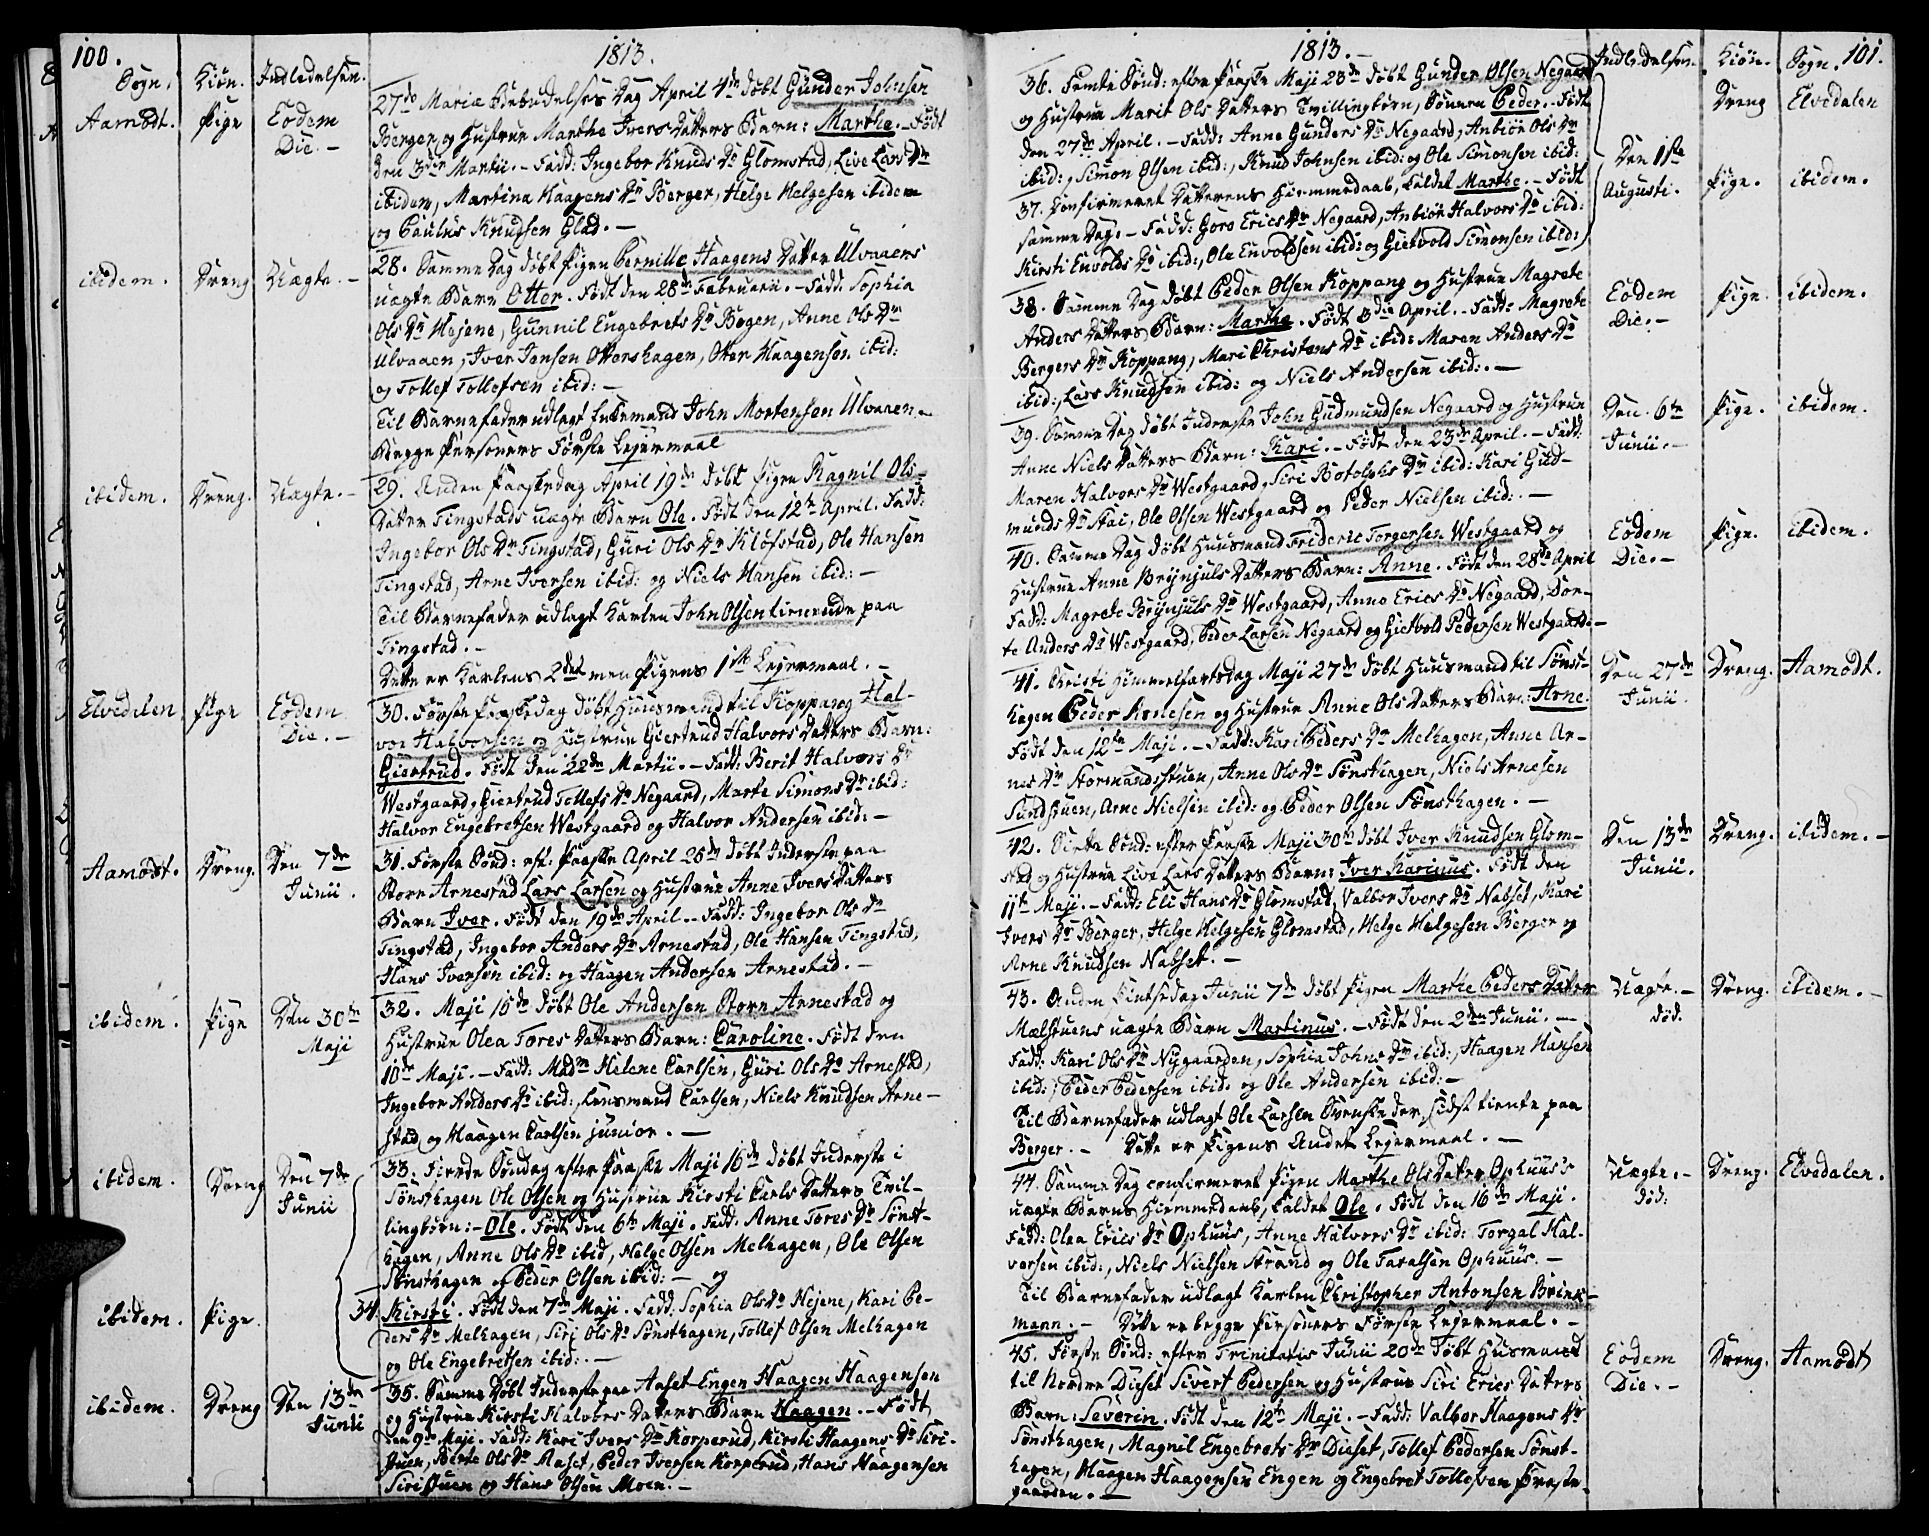 100.
1813.
Sogn. Kiön. Indledelsen.
27de Mariæ Bebudelses Dag April 4de döbt Gunder Johnsen
Aamodt. Pige Eodem Die.-
Berger og Hustrue Marthe Ivers Datters Barn: Marthe.- Födt
den 3die Martii.- Fadd: Ingebor Knuds Dr Glomstad, Live Lars Dr
ibidem, Martina Haagens Dr Berger, Helge Helgesen ibidem
og Paulus Knudsen Glad.-
28. Samme Dag döbt Pigen Pernille Haagens Datter Ulvaaens
ibidem. Dreng Uægte.-
uægte Barn Otter. Födt den 28de Februarii.- Fadd: Sophia
Ols Dr Hejene, Gunnil Engebrets Dr Bogen, Anne Ols Dr
Ulvaaen, Iver Jensen Ottershagen, Otter Haagensen ibid:
og Tollef Tollefsen ibid:-
Til Barnefader udlagt Enkemand John Mortensen Ulvaaen.-
Begge Personers Förste Lejermaal
ibidem. Dreng. Uægte.-
29. Anden Paaskedag April 19de döbt Pigen Ragnil Ols
Datter Tingstads uægte Barn Ole. Födt den 12te April. Fadd:
Ingebor Ols Dr Tingstad, Guri Ols Dr Kløfstad, Ole Hansen
Tingstad, Arne Iversen ibid: og Niels Hansen ibid:-
Til Barnefader udlagt Karlen John Olsen tienende paa
Tingstad.-
Dette er Karlens 2det men Pigens 1ste Lejermaal.-
Elvedalen Pige Eodem Die.-
30. Förste Paaskedag döbt Huusmand til Koppang Hal-
vor Halvorsen og Hustrue Giertrud Halvors Datters Barn:
Giertrud. Födt den 22de Martii.- Fadd: Berit Halvors Dr
Westgaard, Giertrud Tollefs Dr Negaard, Marte Simons Dr ibid:
Halvor Engebretsen Westgaard og Halvor Andersen ibid:-
Aamodt. Dreng. Den 7de Junii.
31. Förste Sönd: eft: Paaske April 25de döbt Inderste paa
Store Arnestad Lars Larsen og Hustrue Anne Ivers Datters
Barn Iver. Födt den 19de April.- Fadd: Ingebor Ols Dr
Tingstad, Ingebor Anders Dr Arnestad, Ole Hansen Tingstad,
Hans Iversen ibid: og Haagen Andersen Arnestad.-
ibidem. Pige Den 30te Maji
32. Maji 16de döbt Ole Andersen Store Arnestad og
Hustrue Olea Tores Datters Barn: Caroline. Födt den
10de Maji.- Fadd: Madm Helene Carlsen, Guri Ols Dr Arnestad,
Ingebor Anders Dr ibid:, Lensmand Carlsen, Niels Knudsen Arne-
stad og Haagen Carlsen junior.-
ibidem. Dreng Den 7de Junii
33. Fierde Söndag efter Paaske Maji 16de döbt Inderste i
Sönsthagen Ole Olsen og Hustrue Kirsti Carls Datters Tvil-
lingbörn:- Ole. Födt den 6te Maji. Fadd: Anne Tores Dr Sönst-
hagen, Anne Ols Dr ibid, Helge Olsen Melhagen, Ole Olsen
Sönsthagen og Peder Olsen ibid:- og
ibidem. Pige.
34. Kirsti. Födt den 7de Maji. Fadd: Sophia Ols Dr Hejene, Kari Pe-
ders Dr Melhagen, Siri Ols Dr Sönsthagen, Tollef Olsen Melhagen
og Ole Engebretsen ibid:.-
ibidem. Dreng Den 13de Junii
35. Samme Döbt Inderste paa Aaset Engen Haagen Haagensen
og Hustrue Kirsti Halvors Datters Barn Haagen.- Födt
den 9de Maji. Fadd: Kari Ivers Dr Korperud, Kirsti Haagens Dr Siri-
stuen, Berte Ols Dr Aaset, Peder Iversen Korperud, Hans Haagensen
Siristuen og Hans Olsen Moen.-
1813.-
Indledelsen. Kiön. Sogn. 101.
36. Femte Sönd: efter Paaske Maji 23de döbt Gunder Olsen Negaard
og Hustrue Marit Ols Datters Tvillingbörn, Sönnen Peder. Födt
Dreng Elvedalen
den 27de April.- Fadd: Anne Gunders Dr Negaard, Anbiör Ols Dr
ibid:, Simon Olsen ibid:, Knud Johnsen ibid: og Ole Simonsen ibid:
Den 1ste Augusti.
37. Confirmeret Datterens Hiemmedaab, kaldet Marthe.- Födt
Pige. ibidem.
samme Dag.- Fadd: Goro Erics Dr Negaard, Anbiör Halvors Dr ibid:
Kirsti Envolds Dr ibid:, Ole Envoldsen ibid: og Gietvold Simonsen ibid:
38. Samme Dag döbt Peder Olsen Koppang og Hustrue Magrete
Eodem Die.- Pige. ibidem.
Anders Datters Barn: Marthe. Födt 3die April.- Fadd: Magrete
Bergers Dr Koppang, Mari Christens Dr ibid: Maren Anders Dr
ibid:, Lars Knudsen ibid: og Niels Andersen ibid:.-
39. Samme Dag döbt Inderste John Gudmundsen Negaard og Hustrue
Den 6te Junii.- Pige. ibidem.
Anne Niels Datters Barn: Kari.- Födt den 23de April.- Fadd:
Maren Halvors Dr Westgaard, Siri Botolphs Dr ibid: Kari Gud-
munds Dr Stai, Ole Olsen Westgaard og Peder Nielsen ibid:.-
40. Samme Dag döbt Huusmand Frideric Torgersen Westgaard og
Eodem Die.- Pige. ibidem.
Hustrue Anne Brynjuls Datters Barn: Anne. Födt den 28de April
Fadd: Magrete Brynjuls Dr Westgaard, Anne Erics Dr Negaard, Dor-
te Anders Dr Westgaard, Peder Larsen Negaard og Gietvold Pedersen Westgaard.-
41. Christi Himmelfartsdag Maji 27de döbt Huusmand til Sönst-
Den 27de Junii. Dreng. Aamodt.
hagen Peder Arnesen og Hustrue Anne Ols Datters Barn: Arne.
Födt den 12te Maji.- Fadd: Kari Peders Dr Melhagen, Anne Ar-
nes Dr Stormandsstuen, Anne Ols Dr Sönsthagen, Niels Arnesen
Sundstuen, Arne Nielsen ibid: og Peder Olsen Sönsthagen.-
42. Siette Sönd: efter Paaske Maji 30te döbt Iver Knudsen Glom-
Den 13de Junii. Dreng. ibidem.-
stad og Hustrue Live Lars Datters Barn: Iver Karinus. Födt den
11te Maji.- Fadd: Eli Hans Dr Glomstad, Valbor Ivers Dr Nabset, Kari
Ivers Dr Berger, Helge Helgesen Glomstad, Helge Helgesen Berger og
Arne Knudsen Nabset.-
43. Anden Pintsedag Junii 7de döbt Pigen Marthe Peders Datter
Uægte.- död. Dreng. ibidem.-
Mælstuens uægte Barn Martinus.- Födt den 2den Junii.-
Fadd: Kari Ols Dr Nygaarden, Sophia Johns Dr ibid:, Haagen Hansen
ibid:, Peder Pedersen ibid: og Ole Andersen ibid:-
Til Barnefader udlagt Ole Larsen Svenske der sidst tiente paa
Berger.- Dette er Pigens Andet Lejermaal.-
44. Samme Dag confirmeret Pigen Marthe Ols Datter Ophuus's
Uægte.- Död: Dreng. Elvedalen.
uægte Barns Hiemmedaab, kaldet Ole. Födt den 16de Maji.
Fadd: Olea Erics Dr Ophuus, Anne Halvors Dr ibid: Torgal Hal-
vorsen ibid:, Niels Nielsen Strand og Ole Taralsen Ophuus.-
Til Barnefader udlagt Karlen Christopher Antonsen Brink-
mann.- Dette er begge Personers Förste Lejermaal.-
45. Förste Sönd: efter Trinitatis Junii 20de döbt Husmand
Eodem Die.- Dreng. Aamodt
til Nordre Dieset Sivert Pedersen og Hustrue Siri Erics Datters
Barn: Severin. Födt den 12te Maji.- Fadd: Valbor Haagens Dr
Sönsthagen, Magnil Engebrets Dr Dieset, Tollef Pedersen Sönst-
hagen, Haagen Haagensen Engen og Engebret Tollefsen Præste-
gaarden.-